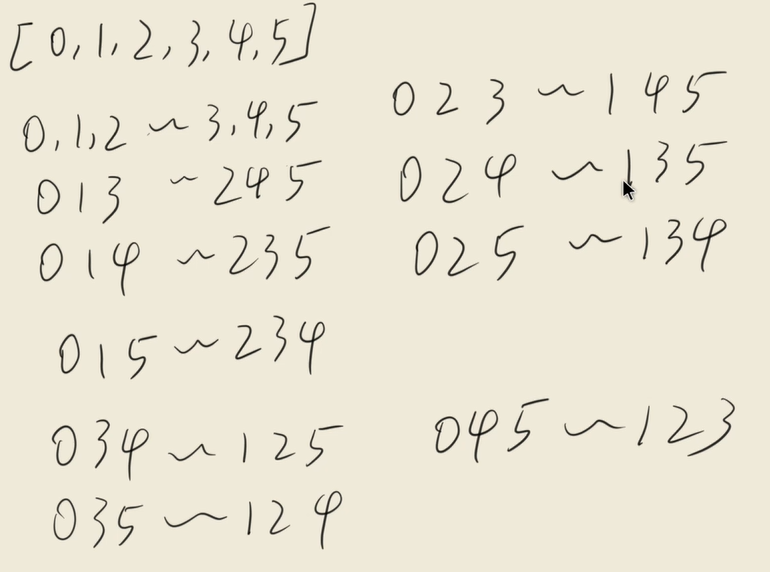 [0,1,2,3,4,5]
0,1,2 ~ 3,4,5
013 ~ 245
014 ~ 235
015 ~ 234
034 ~ 125
035 ~ 124
023 ~ 145
024 ~ 135
025 ~ 134
045 ~ 123